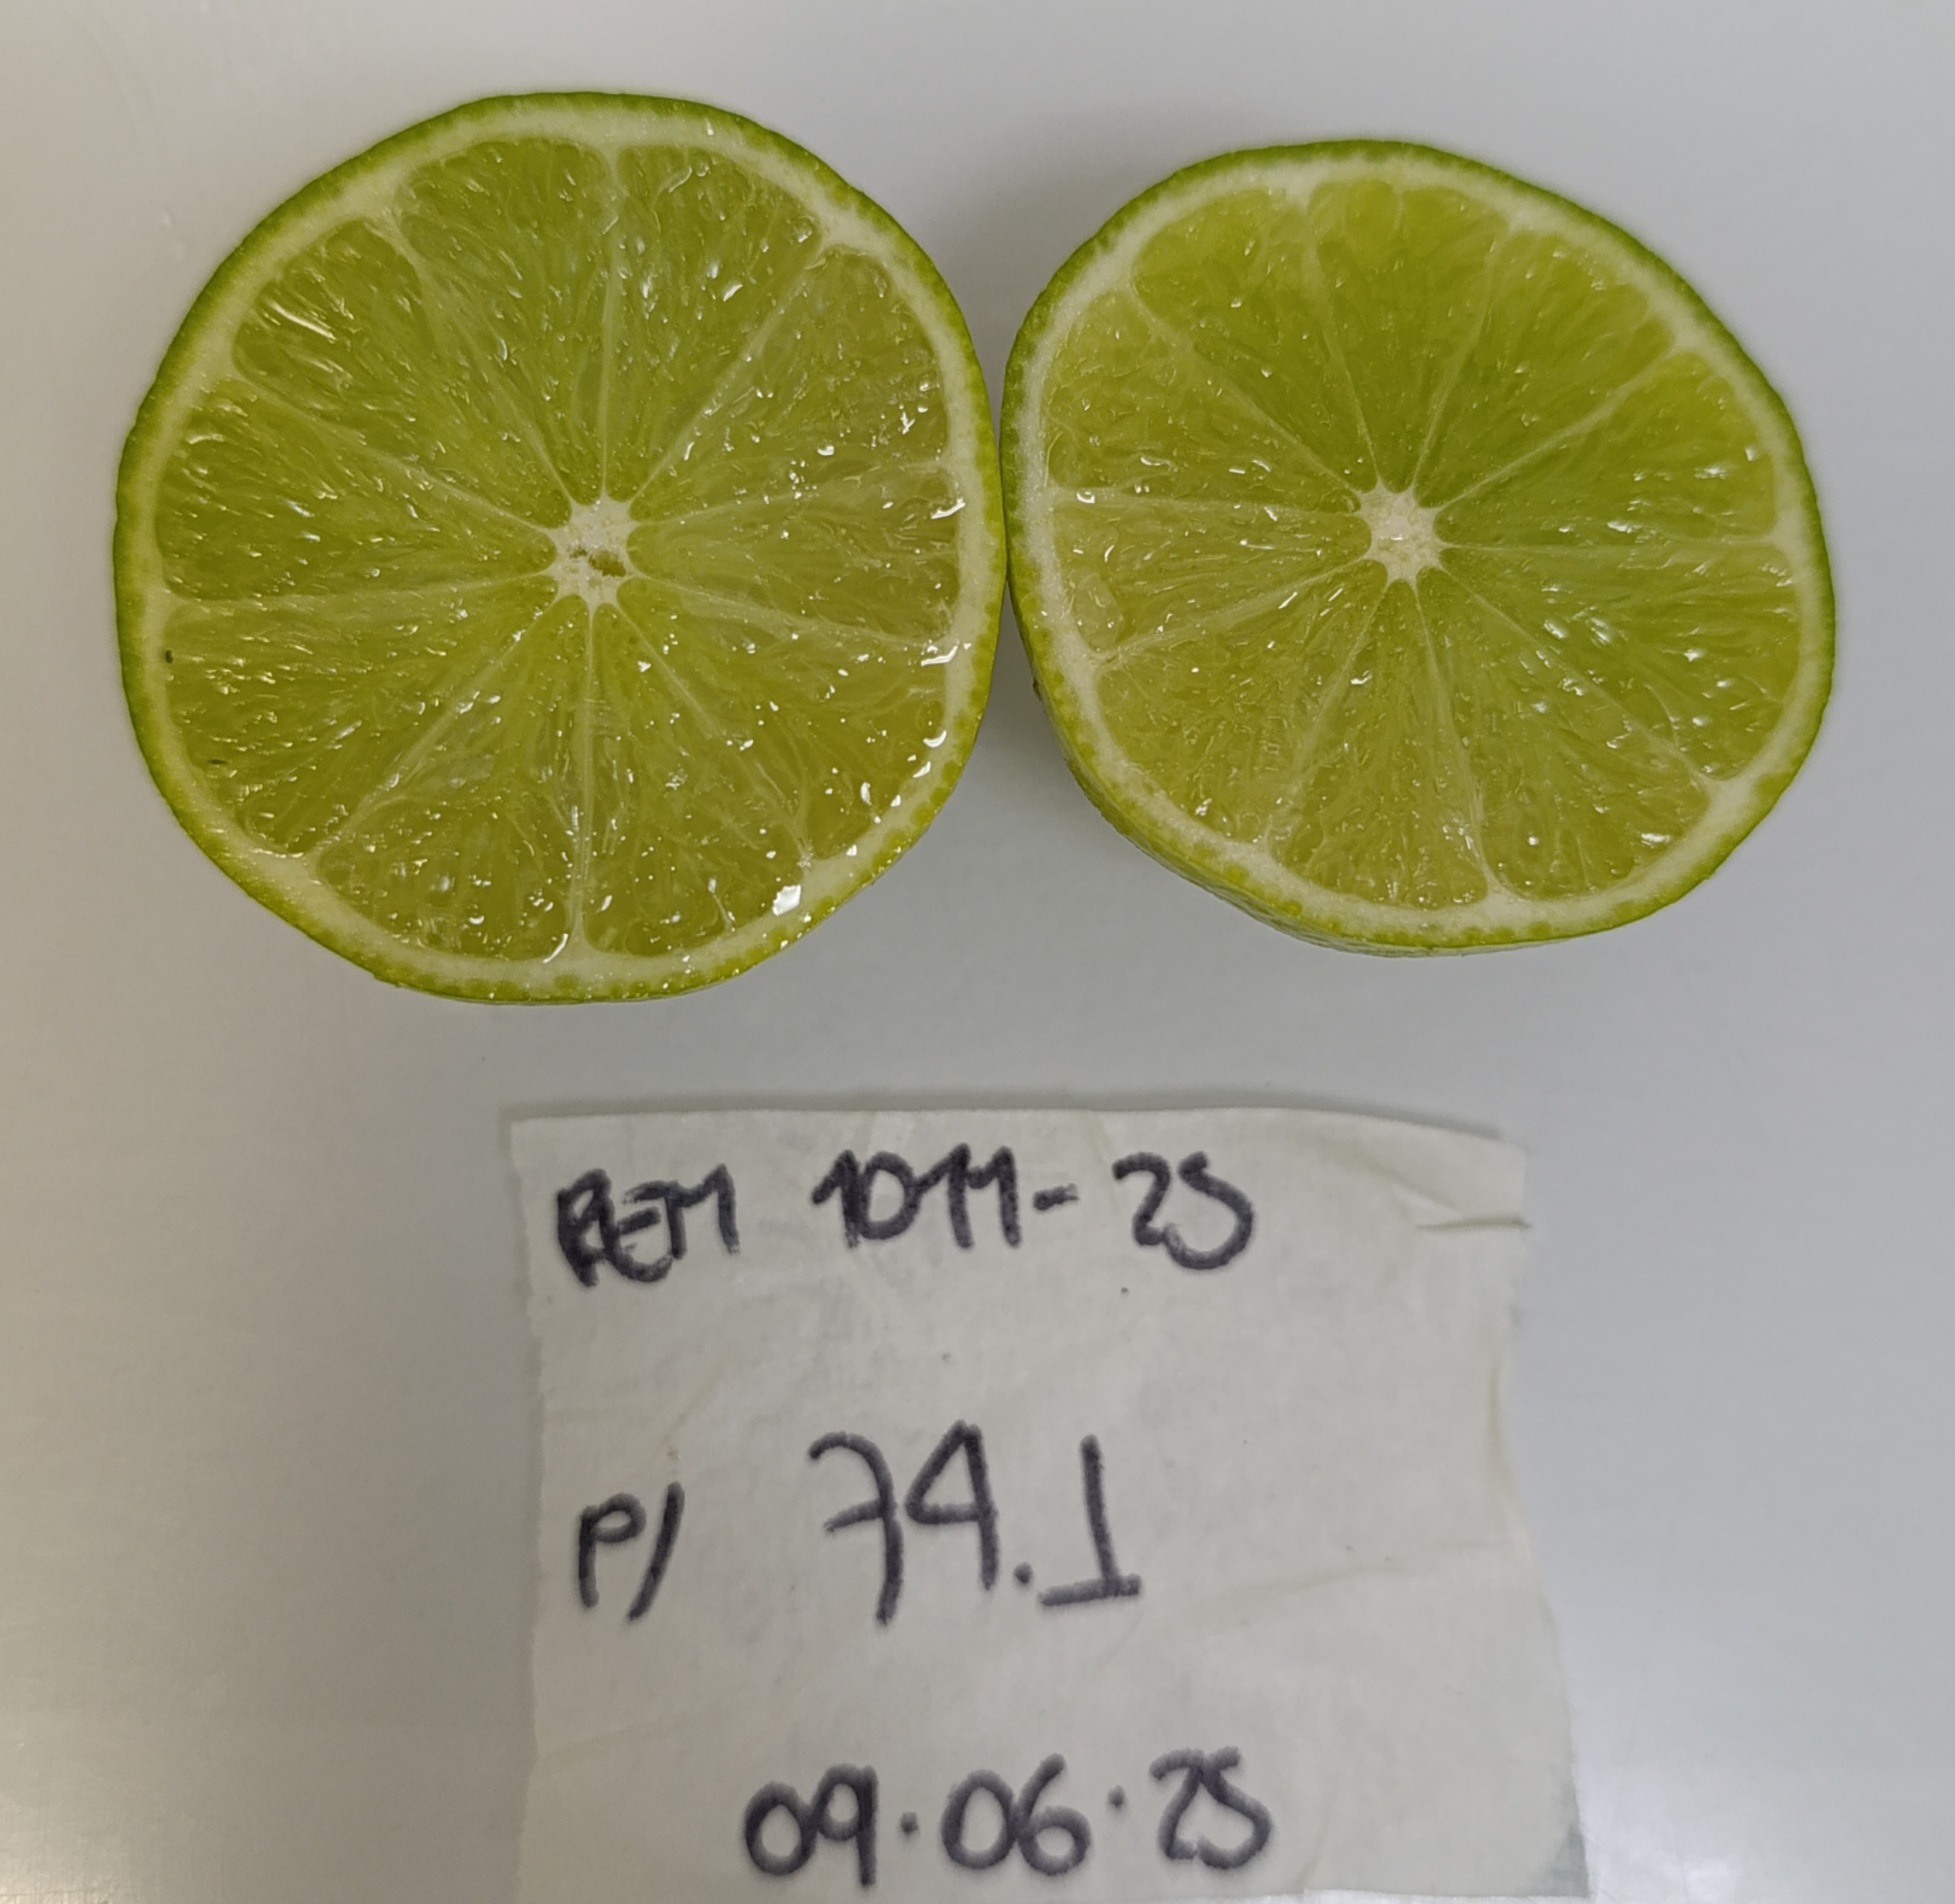 REM 1011-25
P/ 74.1
09.06.25